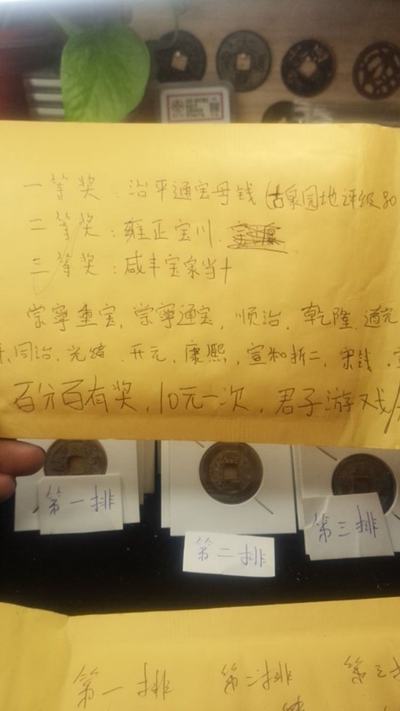 一等奖：治平通宝母钱(古泉园地评级80
二等奖：雍正宝川
三等奖：咸丰宝泉当十
崇宁重宝，崇宁通宝，顺治，乾隆，道光
同治，光绪，开元，康熙，宣和折二，宋钱，
百分百有奖，10元一次，君子游戏
第一排
第二排
第三排
第一排 第二排 第三排